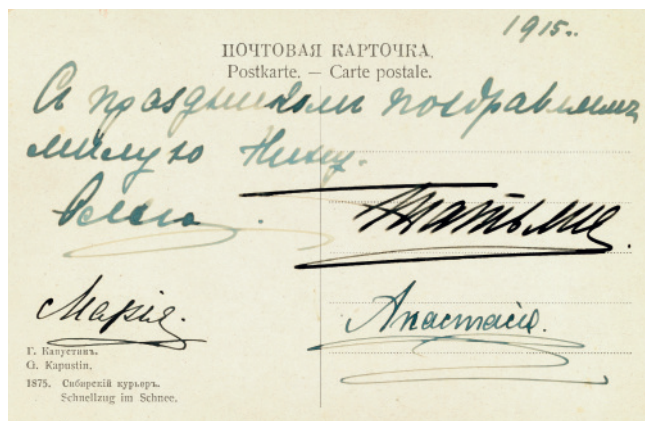 1915..
ПОЧТОВАЯ КАРТОЧКА.
Postkarte. — Carte postale.
Съ праздникомъ поздравляемъ
милую Нину.
Ольга.
Татьяна.
Марія.
Анастасія.
Г. Капустинъ.
G. Kapustin.
1875. Сибирскій курьеръ.
Schnellzug im Schnee.